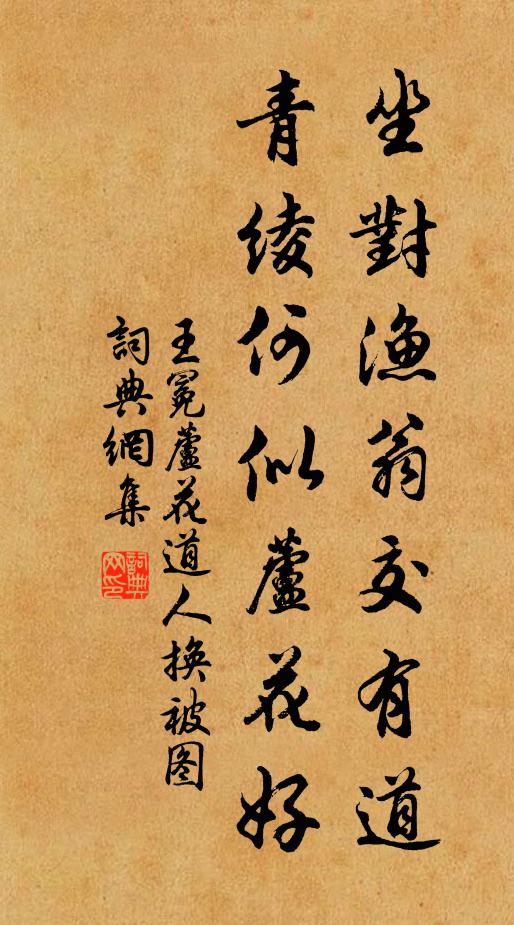 坐對漁翁交有道
青綾何似蘆花好
王冕蘆花道人換被图
詞典網集
詞典网印